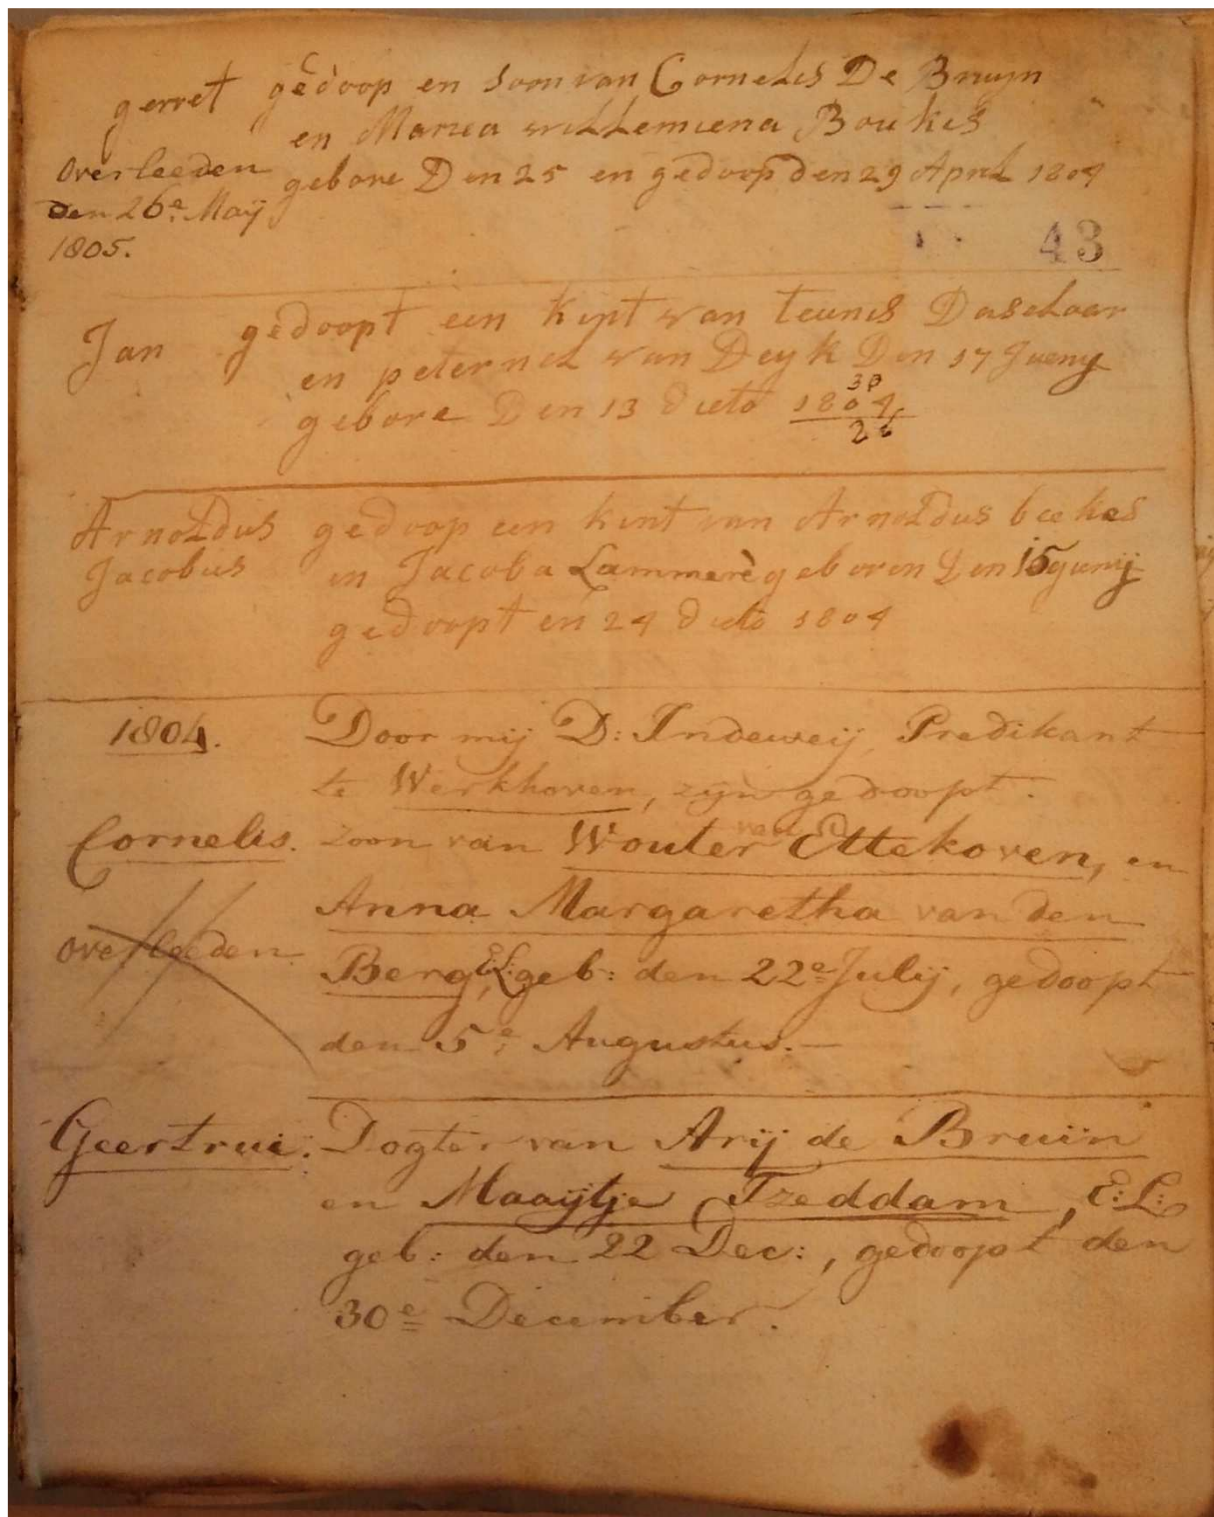 gerret gedoop en soon van Cornelis De Bruyn
en Maria willemiena Boukes
Overleeden
gebore Den 25 en gedoop den 29 April 1804
den 26e Maij
1805.
43
Jan gedoopt een kint van teunis Daselaar
en peternel van Deyk Den 17 Jueny
30
gebore Den 13 dieto 1804
26
Arnoldus gedoop een kint van Arnoldus beekes
Jacobus en Jacoba Lammerè geboren Den 15 juny
gedoopt en 24 dieto 1804
1804. Door mij D: Indeweij, Predikant
te Werkhoven, zijn gedoopt.
van
Cornelis. zoon van Wouter Ettekoven, en
Anna Margaretha van den
Overleeden. Berg, E:L: geb: den 22e Julij, gedoopt
den 5e Augustus.—
Geertrui: Dogter van Arij de Bruin
en Maaijtje Tzeddam, E:L:
geb: den 22 Dec:, gedoopt den
30e December.